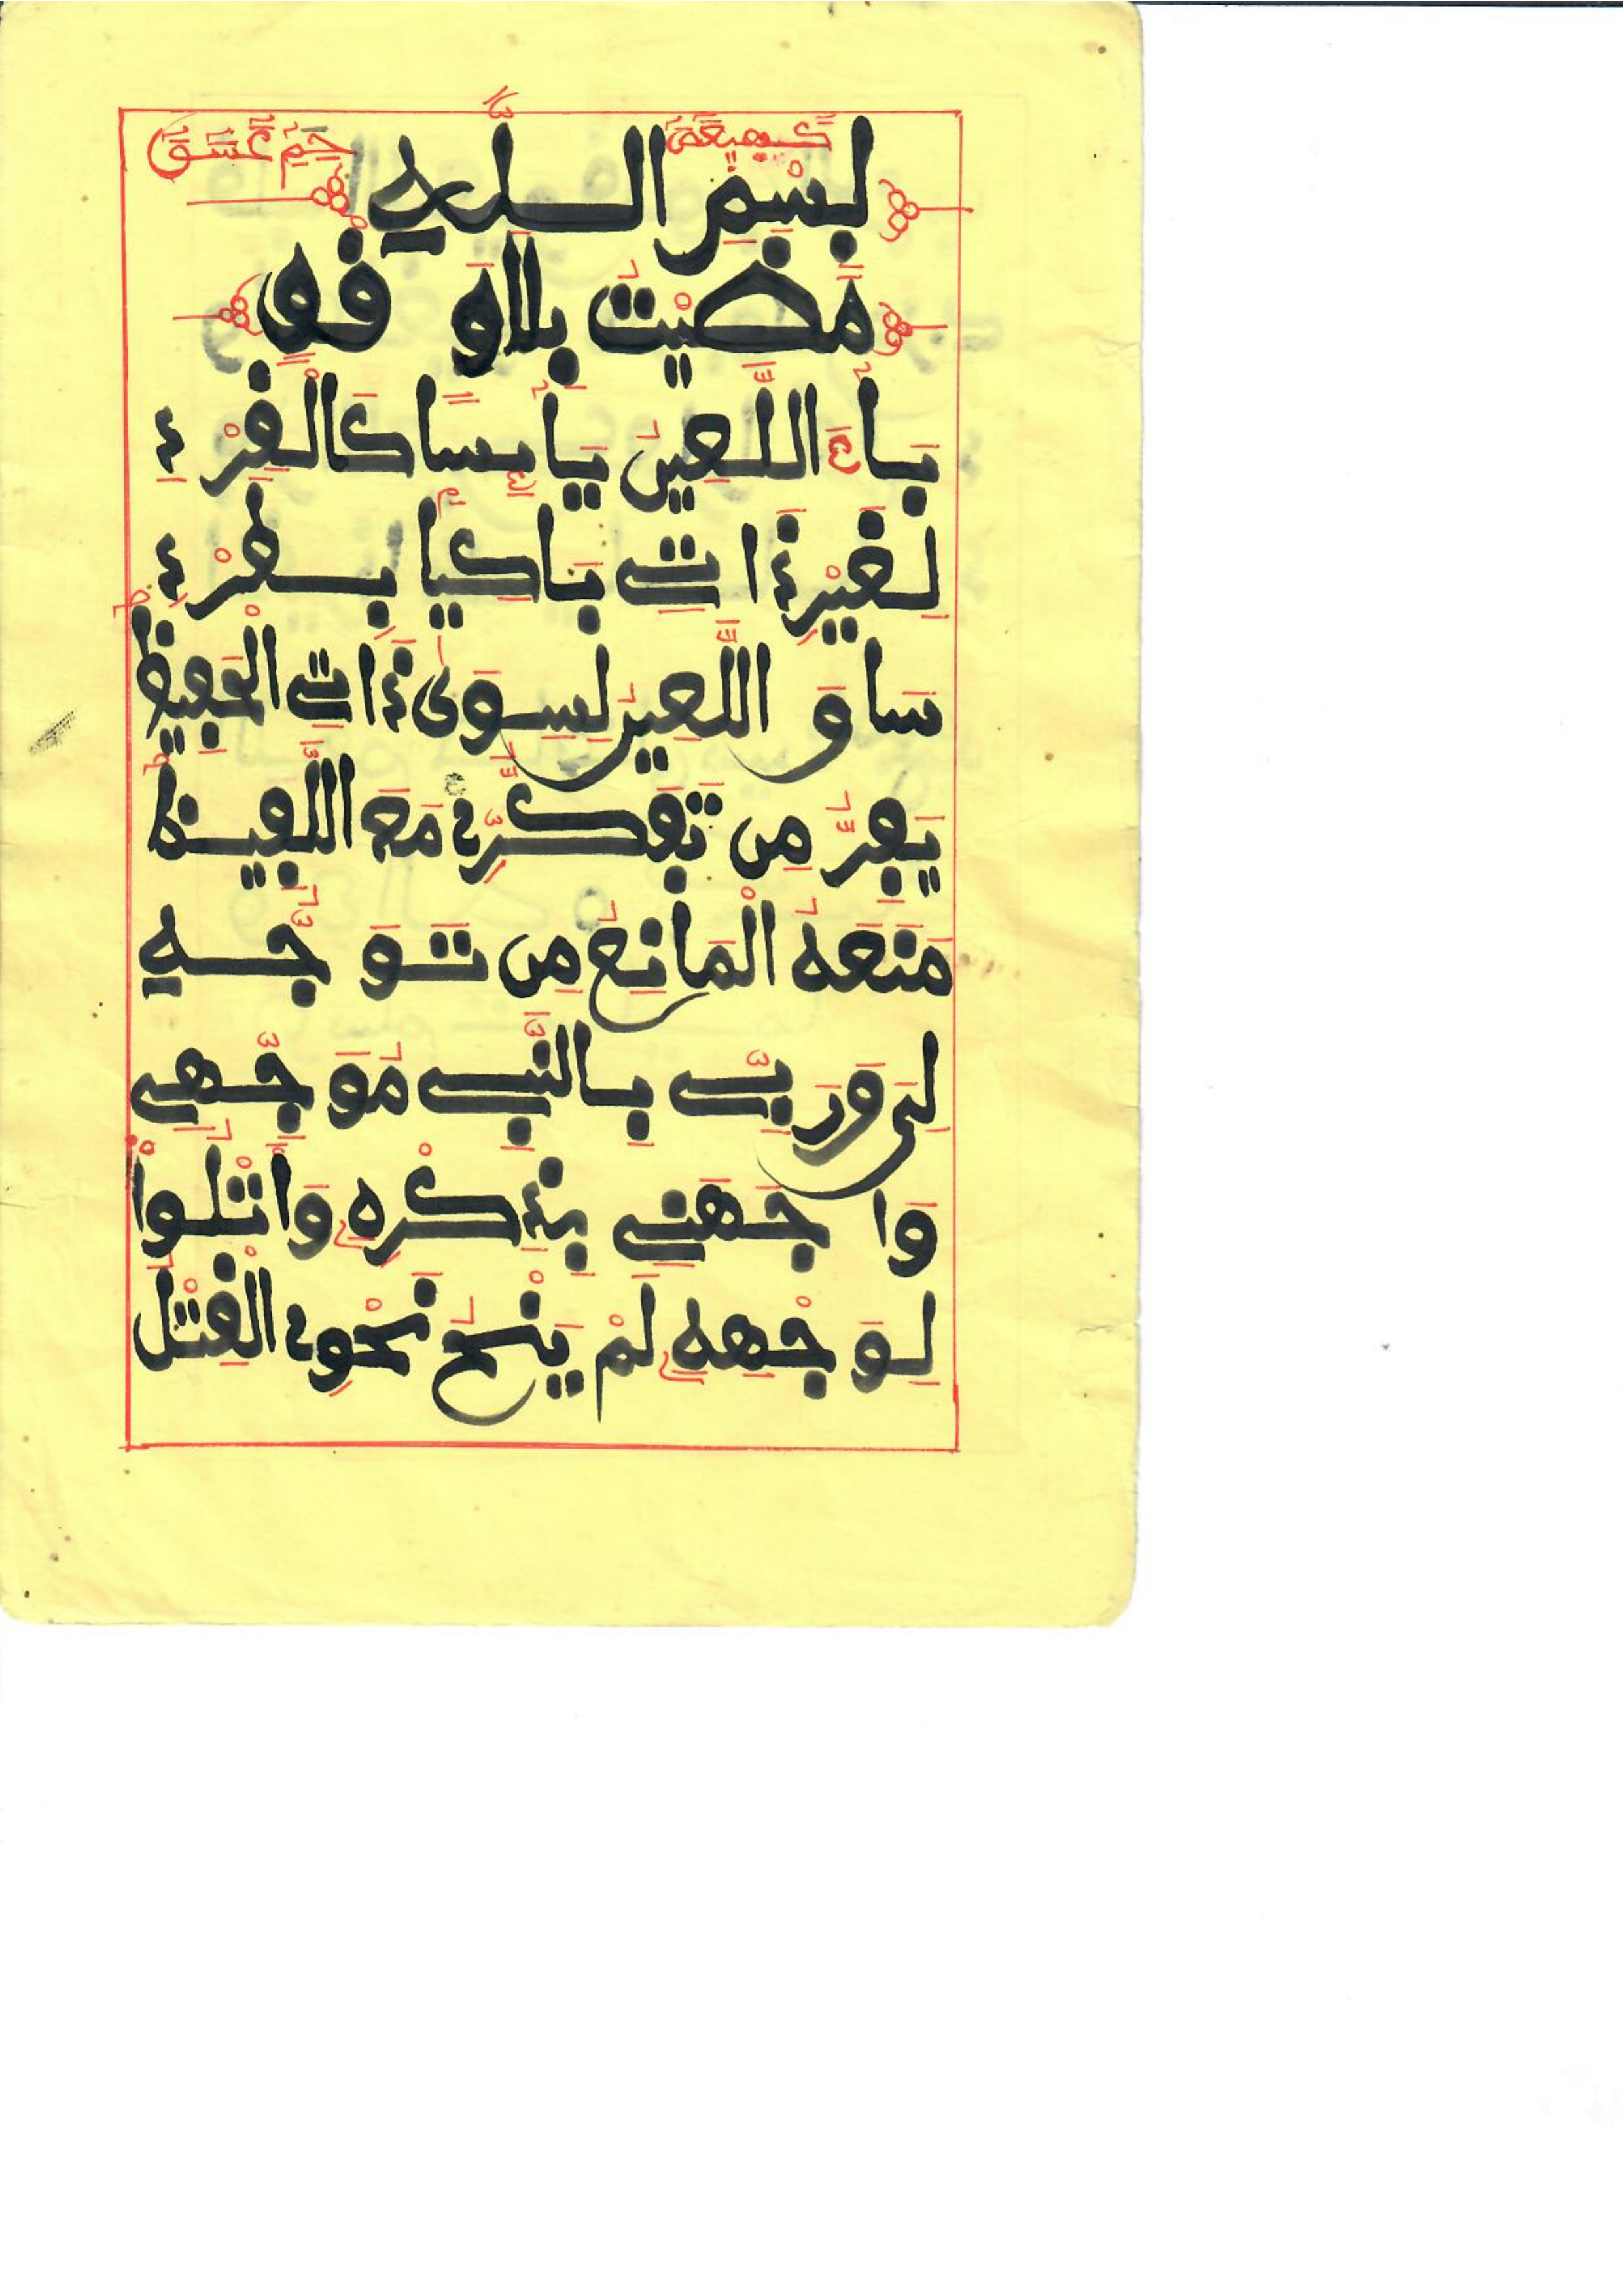 كهيعص بسم الله حم عسق
مضيت بلا وقف
باء اللعين يائسا كالقرد
لغير ذاتي باكيا بطرد
ساق اللعين لسوى ذاتي الحفيظ
يفر من تفكري مع اللفيظ
منعه المانع من توجه
لي وربي بالنبي موجهي
واجهني بذكره واتلوا
لوجهه لم ينح نحوي القتل